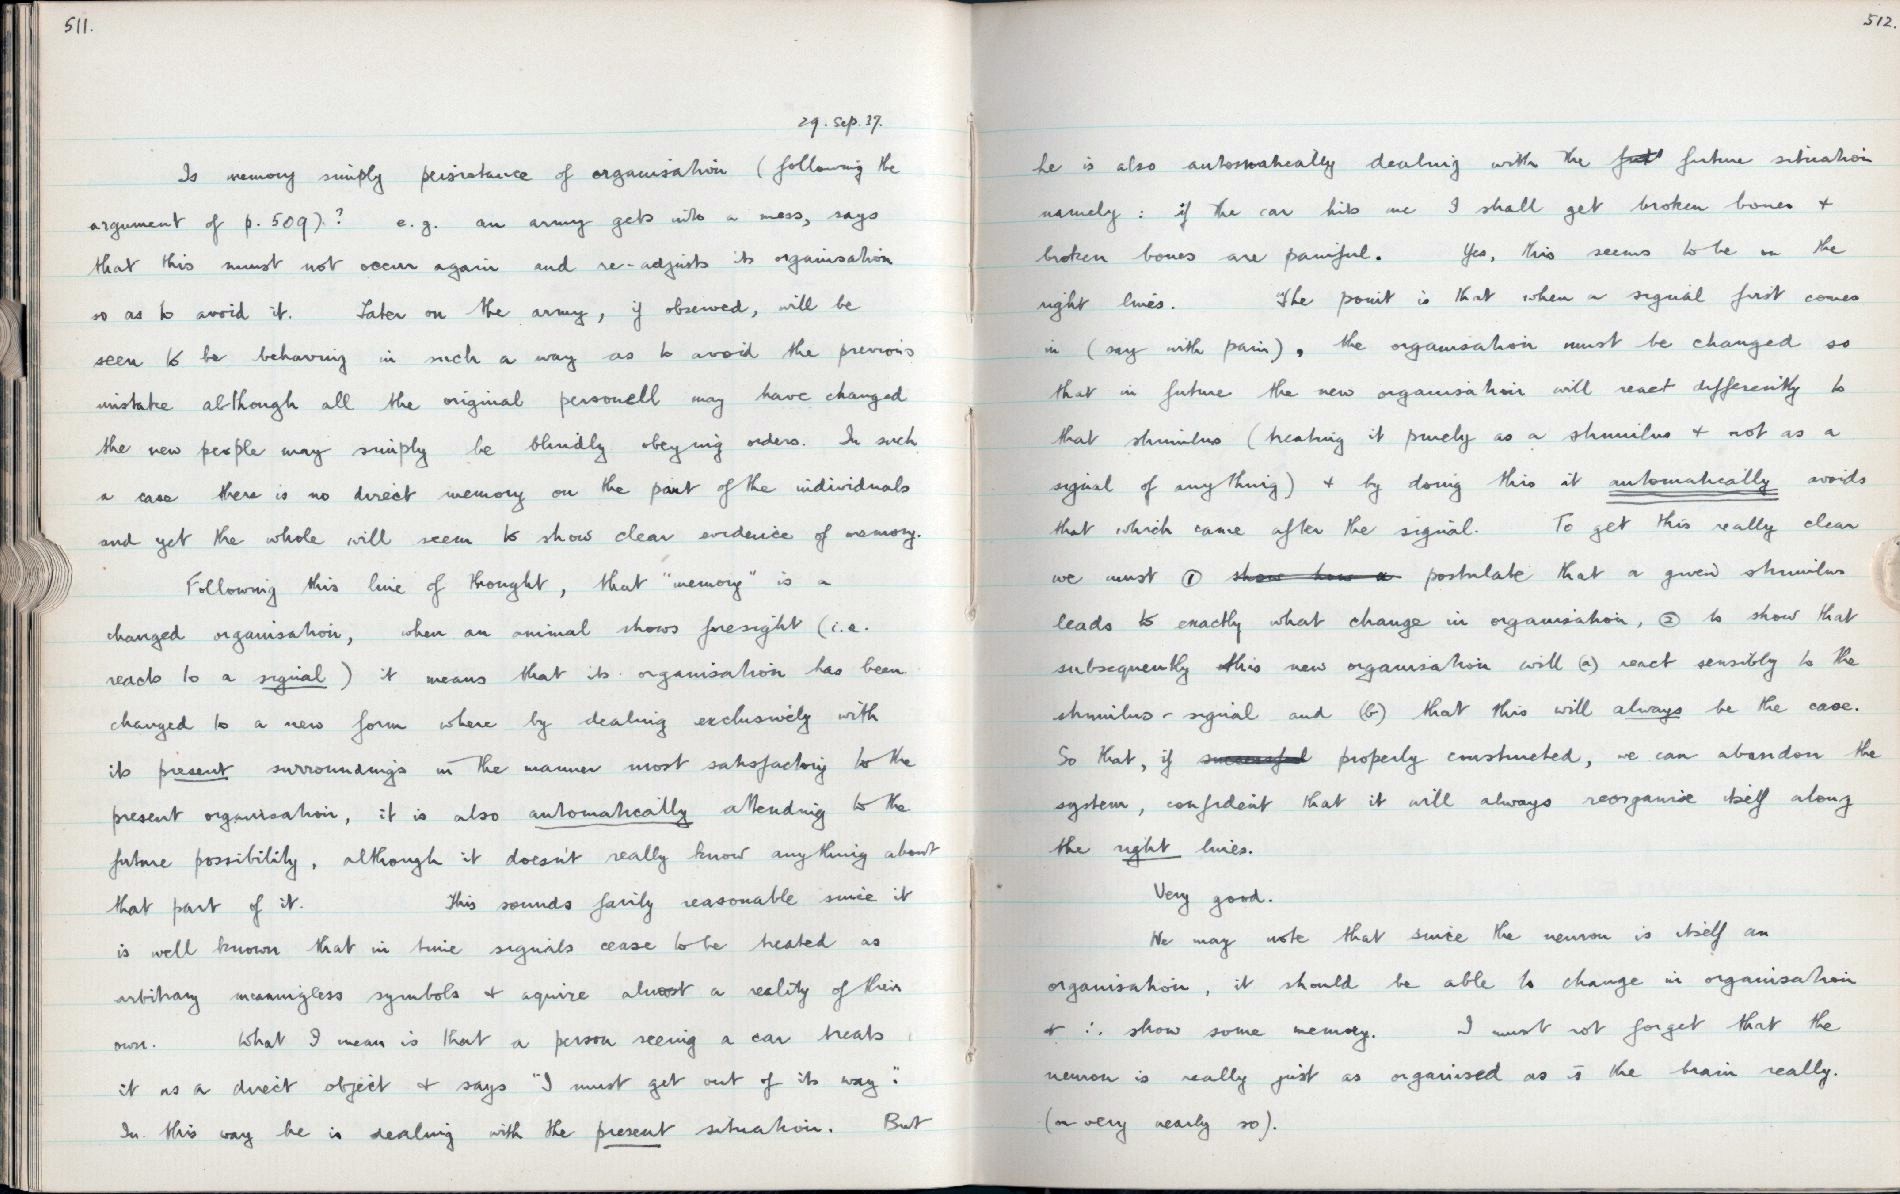 511.
29. Sep. 37.
Is memory simply persistance of organisation (following the
argument of p. 509)? e.g. an army gets into a mess, says
that this must not occur again and re-adjusts its organisation
so as to avoid it. Later on the army, if observed, will be
seen to be behaving in such a way as to avoid the previous
mistake although all the original personell may have changed
the new people may simply be blindly obeying orders. In such
a case there is no direct memory on the part of the individuals
and yet the whole will seem to show clear evidence of memory.
Following this line of thought, that "memory" is a
changed organisation, when an animal shows foresight (i.e.
reacts to a signal) it means that its organisation has been
changed to a new form where by dealing exclusively with
its present surroundings in the manner most satisfactory to the
present organisation, it is also automatically attending to the
future possibility, although it doesn't really know anything about
that part of it. This sounds fairly reasonable since it
is well known that in time signals cease to be treated as
arbitrary meaningless symbols & aquire almost a reality of their
own. What I mean is that a person seeing a car treats
it as a direct object & says "I must get out of its way".
In this way he is dealing with the present situation. But
512.
he is also automatically dealing with the fut future situation
namely: if the car hits me I shall get broken bones &
broken bones are painful. Yes, this seems to be on the
right lines. The point is that when a signal first comes
in (say with pain), the organisation must be changed so
that in future the new organisation will react differently to
that stimulus (treating it purely as a stimulus & not as a
signal of anything) & by doing this it automatically avoids
that which came after the signal. To get this really clear
we must ① show how a postulate that a given stimulus
leads to exactly what change in organisation, ② to show that
subsequently this new organisation will (a) react sensibly to the
stimulus-signal and (b) that this will always be the case.
So that, if successful properly constructed, we can abandon the
system, confident that it will always reorganise itself along
the right lines.
Very good.
We may note that since the neuron is itself an
organisation, it should be able to change in organisation
& ∴ show some memory. I must not forget that the
neuron is really just as organised as is the brain really.
(or very nearly so).